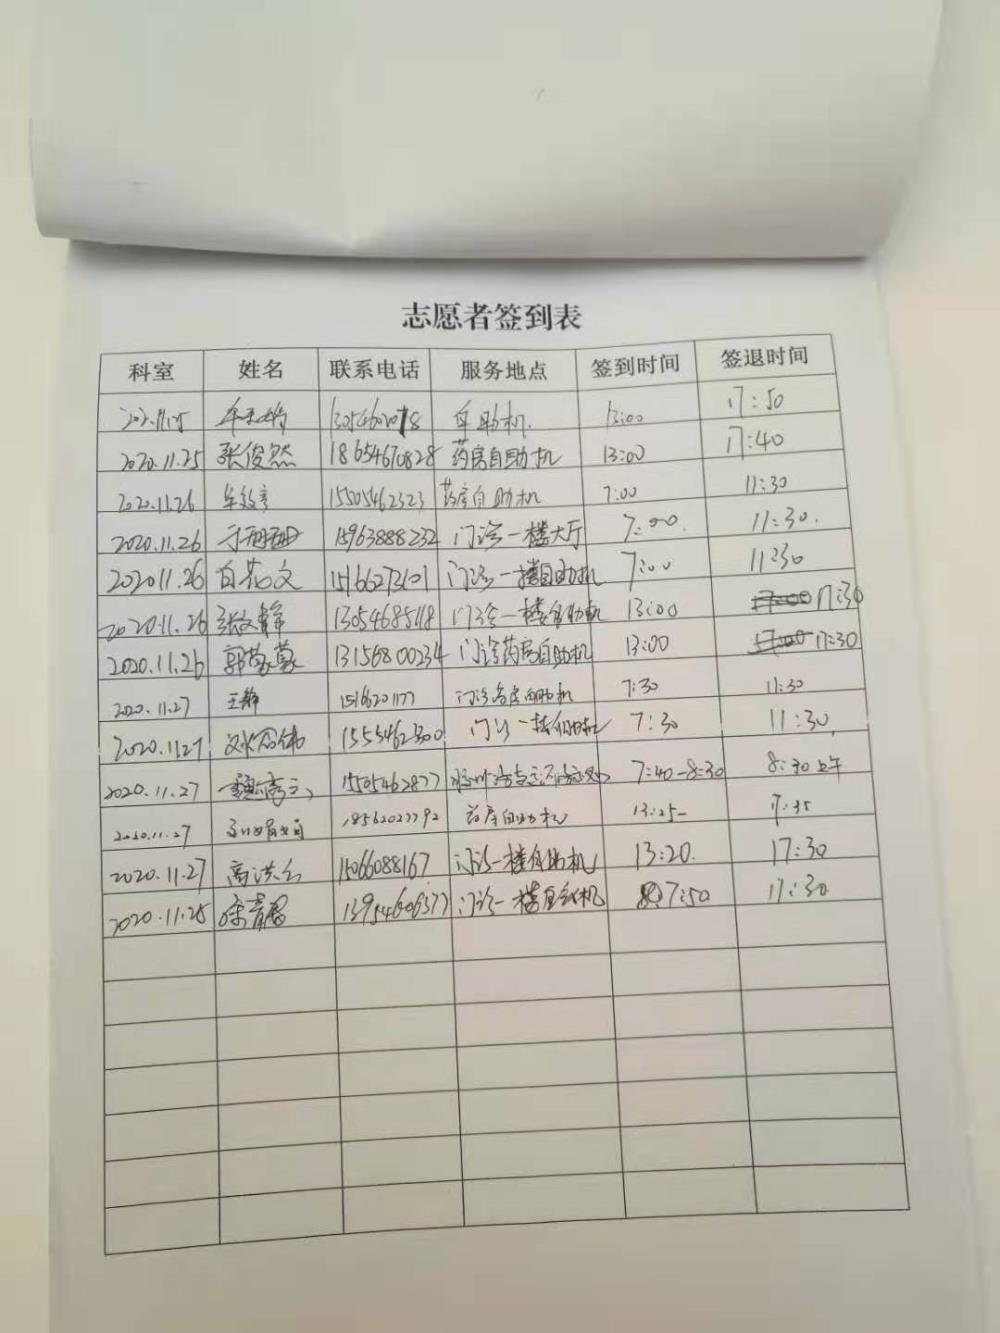 志愿者签到表
科室 姓名 联系电话 服务地点 签到时间 签退时间
2020.11.25 自助机. 13:00 17:50
2020.11.25 张俊然 18654670828 药房自助机 13:00 17:40
2020.11.26 15505462323 药房自助机 7:00 11:30
2020.11.26 于珊珊 15963888232 门诊一楼大厅 7:00. 11:30.
2020.11.26 15166273101 门诊一楼自助机 7:00 11:30
2020.11.26 张文静 13054685118 门诊一楼自助机 13:00 17:30
2020.11.26 郭 13156800234 门诊药房自助机 13:00 17:30
2020.11.27 王静 门诊药房自助机 7:30 11:30
2020.11.27 15554623000 门诊一楼自助机 7:30 11:30
2020.11.27 魏 15505462877 7:40-8:30 8:30上午
2020.11.27 18562023792 药房自助机 13:25- 17:35
2020.11.27 高洪 15066088167 门诊一楼自助机 13:20. 17:30
2020.11.25 徐青 13954606377 门诊一楼自助机 7:50 17:30